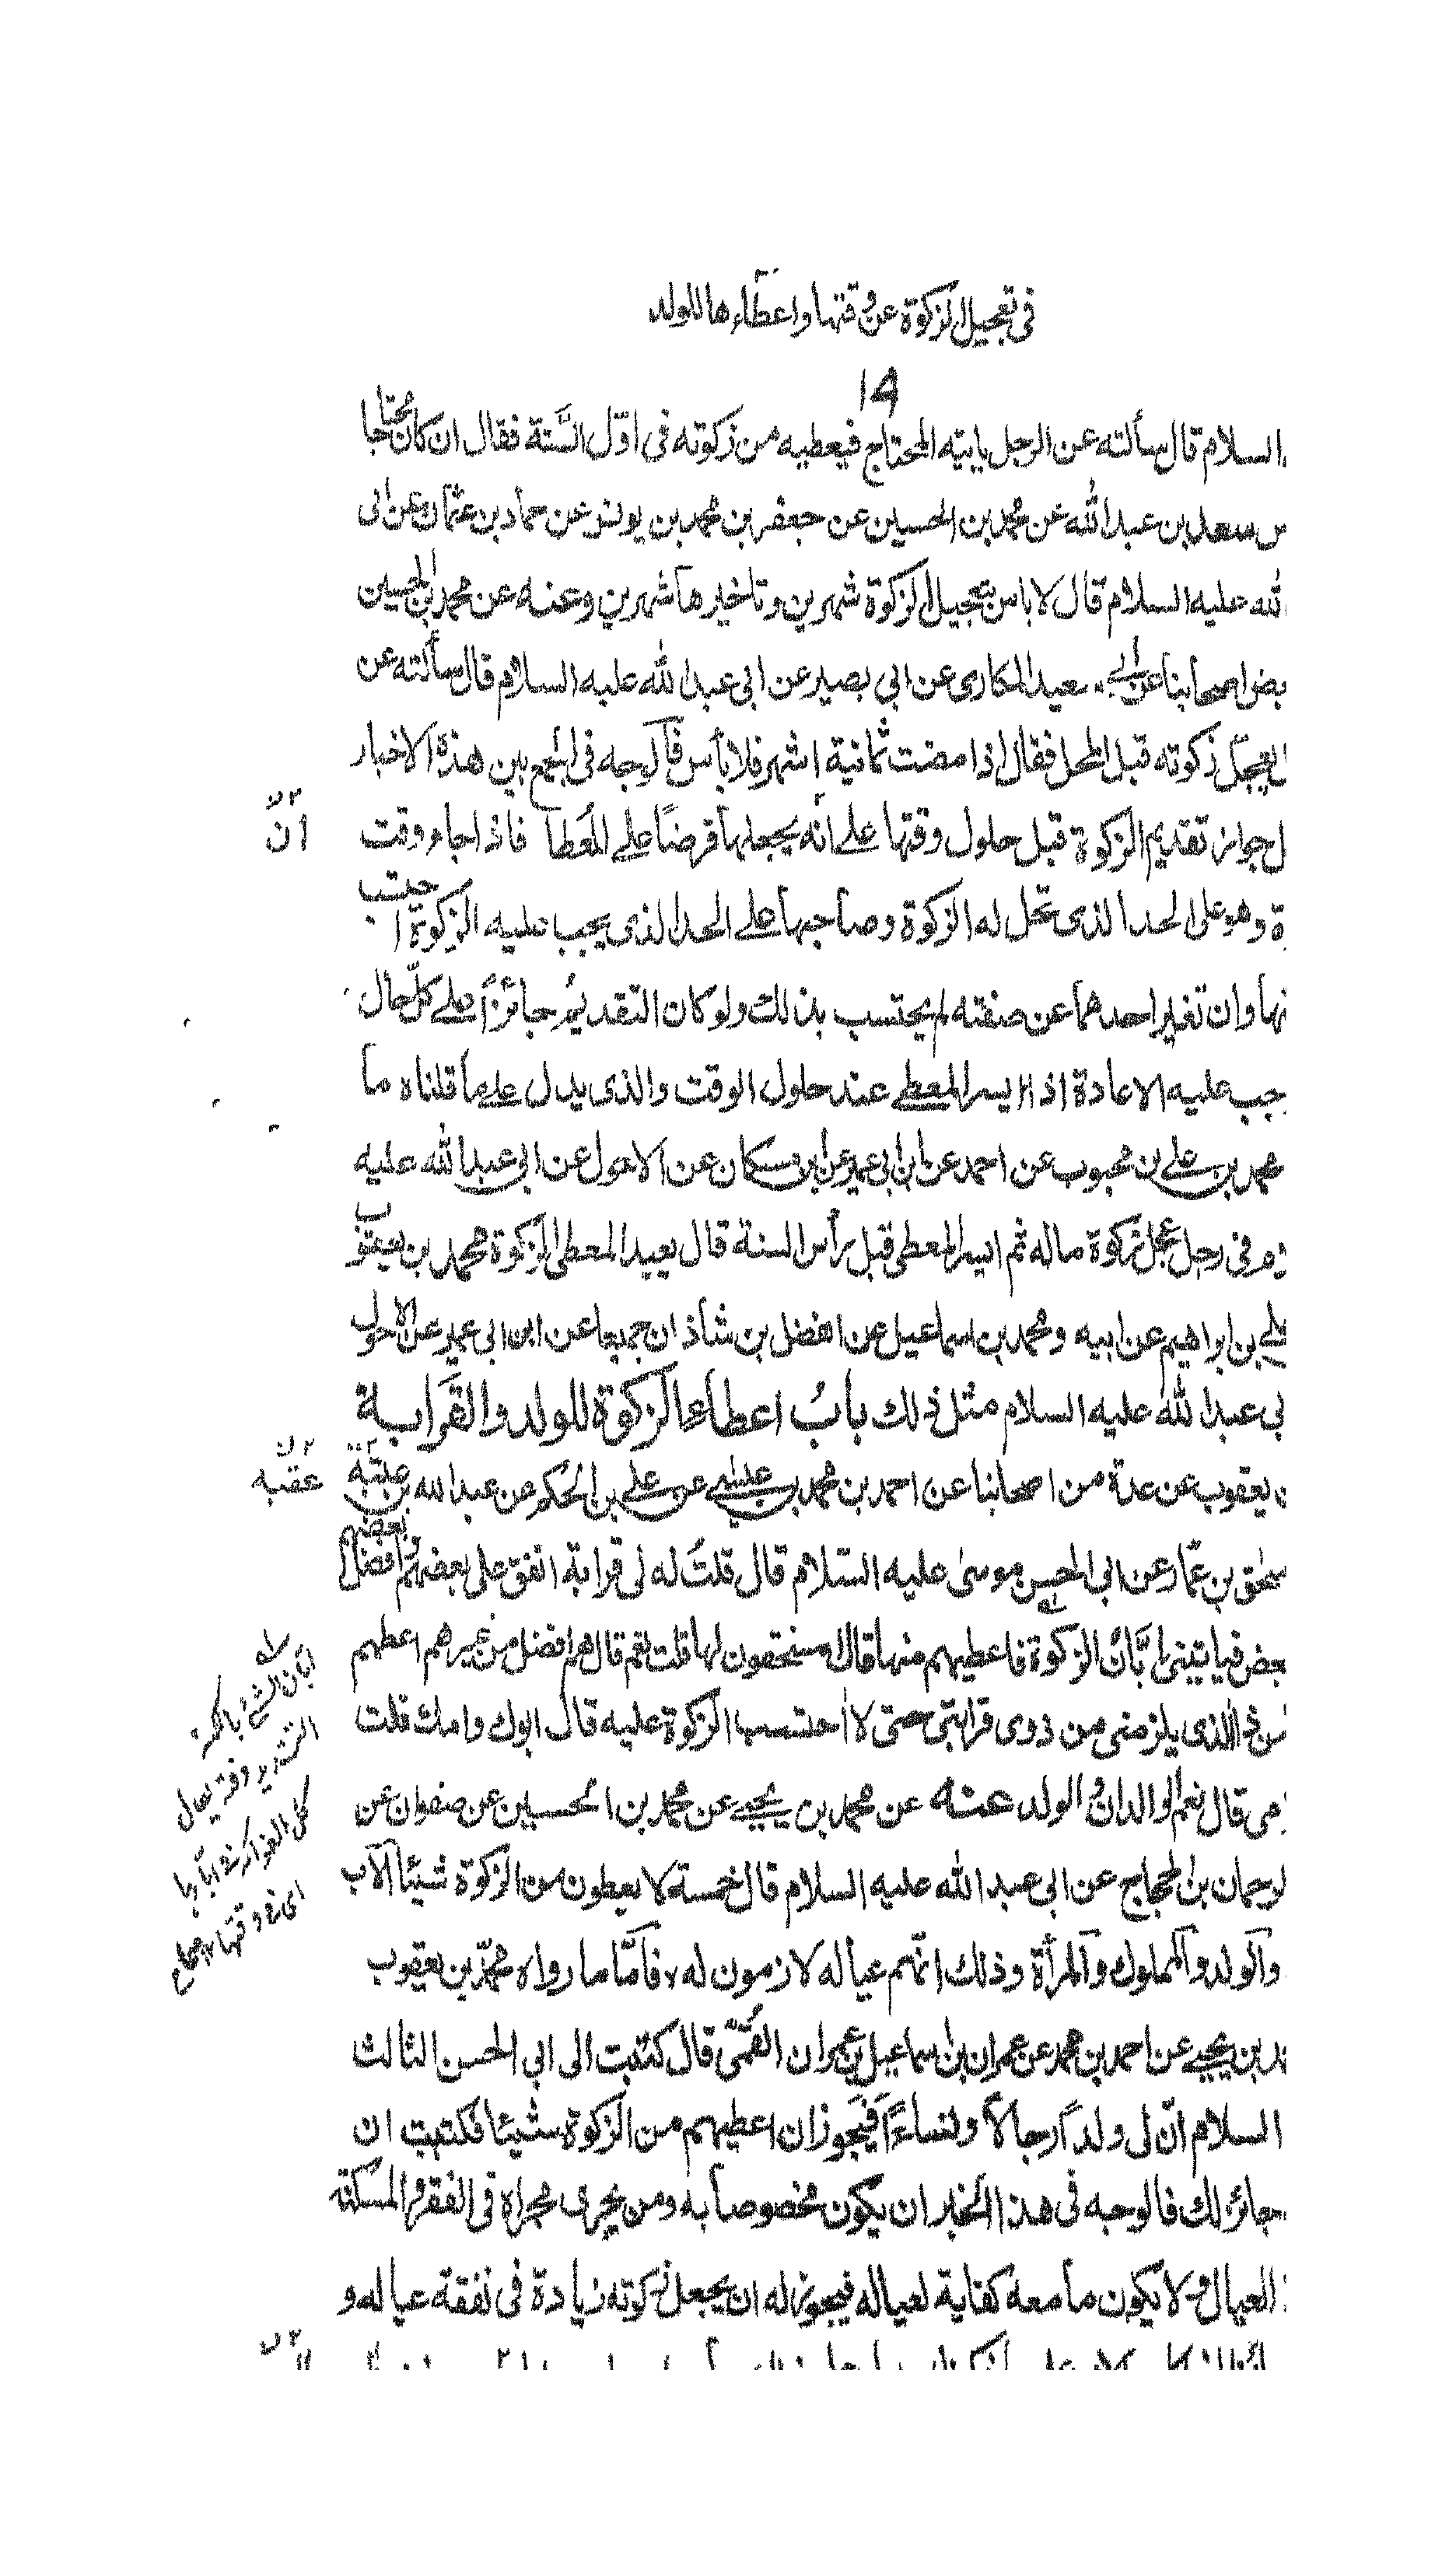 فى تعجيل الزكوة عن وقتها واعطاءها للولد
14
السلام قال سألته عن الرجل ياتيه المحتاج فيعطيه من زكوته فى اوّل السَّنة فقال ان كان محتاجا
س سعد بن عبد الله عن محمد بن الحسين عن جعفر بن محمد بن يونس عن حماد بن عثمان عن ابى
لله عليه السلام قال لا باس بتعجيل الزكوة شهرين وتاخيرها شهرين وعنه عن محمد بن الحسين
بعض اصحابنا عن ابى سعيد المكارى عن ابي بصير عن ابى عبد الله عليه السلام قال سألته عن
ل يعجّل زكوته قبل المحل فقال اذا مضت ثمانية اشهر فلا بأس فالوجه فى الجمع بين هذه الاخبار
ل جواز تقديم الزكوة قبل حلول وقتها على انّه يجعلها قرضًا على المُعطا فاذا جاء وقت
انّ
ة وهو على الحد الذى تحل له الزكوة وصاحبها على الحد الذى يجب عليه الزكوة احتسب
نها وان تغير احدهما عن صفته لم يحتسب بذلك ولو كان التقديمُ جائزاً على كلّ حال
وجب عليه الاعادة اذا ايسر المعطى عند حلول الوقت والذى يدل على ما قلناه ما
محمد بن على بن محبوب عن احمد عن ابن ابى عمير عن ابن مسكان عن الاحول عن ابى عبد الله عليه
م فى رجل عجّل زكوة ماله ثم ايسر المعطى قبل رأس السنة قال يعيد المعطى الزكوة محمد بن يعقوب
على بن ابراهيم عن ابيه ومحمد بن اسماعيل عن الفضل بن شاذان جميعا عن ابن ابى عمير عن الاحول
بى عبد الله عليه السلام مثل ذلك بابُ اعطاء الزكوة للولد والقَرابة
ن يعقوب عن عدة من اصحابنا عن احمد بن محمد بن عيسى عن على بن الحكم عن عبد الله بن عتبة
عقبه
سحٰق بن عمّار عن ابى الحسن موسىٰ عليه السّلام قال قلتُ له لى قرابة انفق على بعضهم وافضل بعضهم
بعض فياتينى ابّانُ الزكوة فاعطيهم منها قال مستحقون لها قلت نعم قال هم افضل من غيرهم اعطهم
فمن ذا الذى يلزمنى من ذوى قرابتى حتى لا احتسب الزكوة عليه قال ابوك وامك قلت
امى قال نعم الوالدان والولد عنه عن محمد بن يحيى عن محمد بن الحسين عن صفوان عن
الرحمان بن الحجاج عن ابى عبد الله عليه السلام قال خمسة لا يعطون من الزكوة شيئا الآب
والولد والمملوك والمرأة وذلك انّهم عياله لازمون له فامّا ما رواه محمّد بن يعقوب
مد بن يحيى عن احمد بن محمد عن عمران بن اسماعيل بن عمران القُمّى قال كتبت الى ابي الحسن الثالث
السلام انّ لى ولداً رجالاً ونساءً افيجوز ان اعطيهم من الزكوة شيئا فكتب ان
جائز لك فالوجه فى هذا الخبر ان يكون مخصوصا به ومن يجرى مجراه فى الفقر والمسكنة
العيال ولا يكون ما معه كفاية لعياله فيجوز له ان يجعل زكوته زيادة فى نفقة عياله و
ابّان الشئ بالكسر